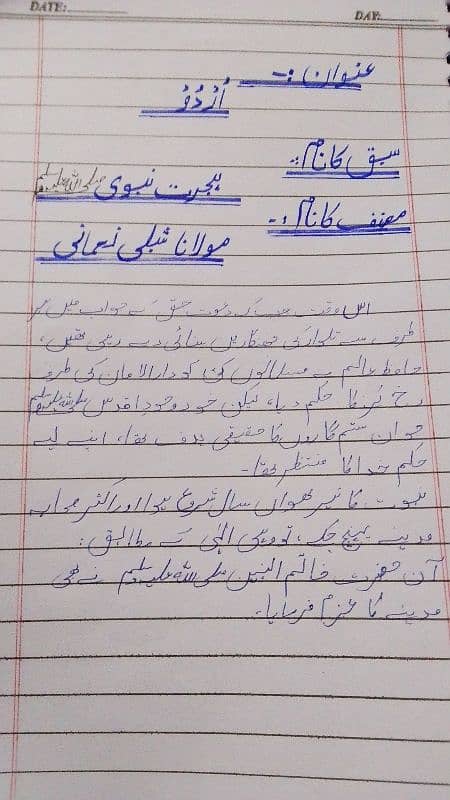 DATE:
DAY:
عنوان :-
اُرْدُوْ
سبق کا نام :-
ہجرت نبوی صلی اللہ علیہ وسلم
مصنف کا نام :-
مولانا شبلی نعمانی
اس وقت جب کہ دعوت حق کے جواب میں ہر
طرف سے تلوار کی جھنکاریں سنائی دے رہی تھیں،
حافظ عالم نے مسلمانوں کو دارالامان کی طرف
رخ کرنے کا حکم دیا، لیکن خود وجود اقدس صلی اللہ علیہ وسلم
جو ان ستم گاروں کا حقیقی ہدف تھا، اپنے لیے
حکم خدا کا منتظر تھا۔
نبوت کا تیرھواں سال شروع ہوا اور اکثر صحابہ
مدینے پہنچ چکے، تو وحی الہٰی کے مطابق :
آن حضرت خاتم النبین صلی اللہ علیہ وسلم نے بھی
مدینے کا عزم فرمایا۔